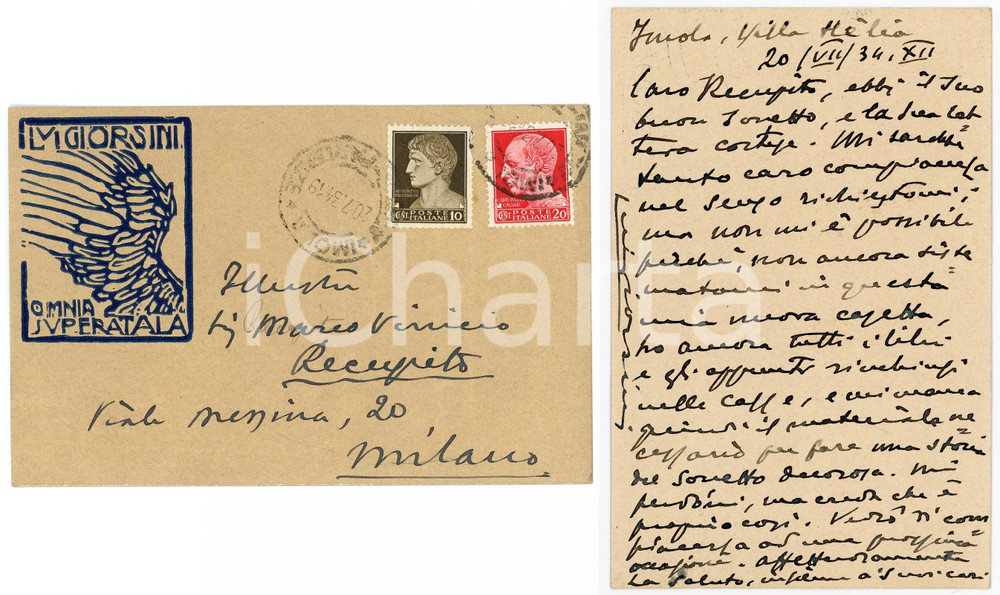 LVIGI ORSINI.
OMNIA
SVPERAT ALA
POSTE
ITALIANE
CENT 10
POSTE
ITALIANE
CENT 20
20.7.34.19
Illustre
Sig Marco Vinicio
Recupito
Viale Messina, 20
Milano
iCharta
Imola, Villa Hélia
20/VII/34. XII
Caro Recupito, ebbi il Suo
buon Sonetto, e la Sua let-
tera cortese. Mi sarebbe
tanto caro compiacerla
nel senso richiestomi;
ma non mi è possibile
perché, non ancora siste
matomi in questa
mia nuova casetta,
ho ancora tutti i libri
e gli appunti rinchiusi
nelle casse, e mi manca
quindi il materiale ne
cessario per fare una storia
del Sonetto decorosa. Mi
perdoni, ma creda che è
proprio così. Vedrò di com
piacerla ad una prossima
occasione. Affettuosamente
La saluto, insieme a' suoi cari
Luigi Orsini